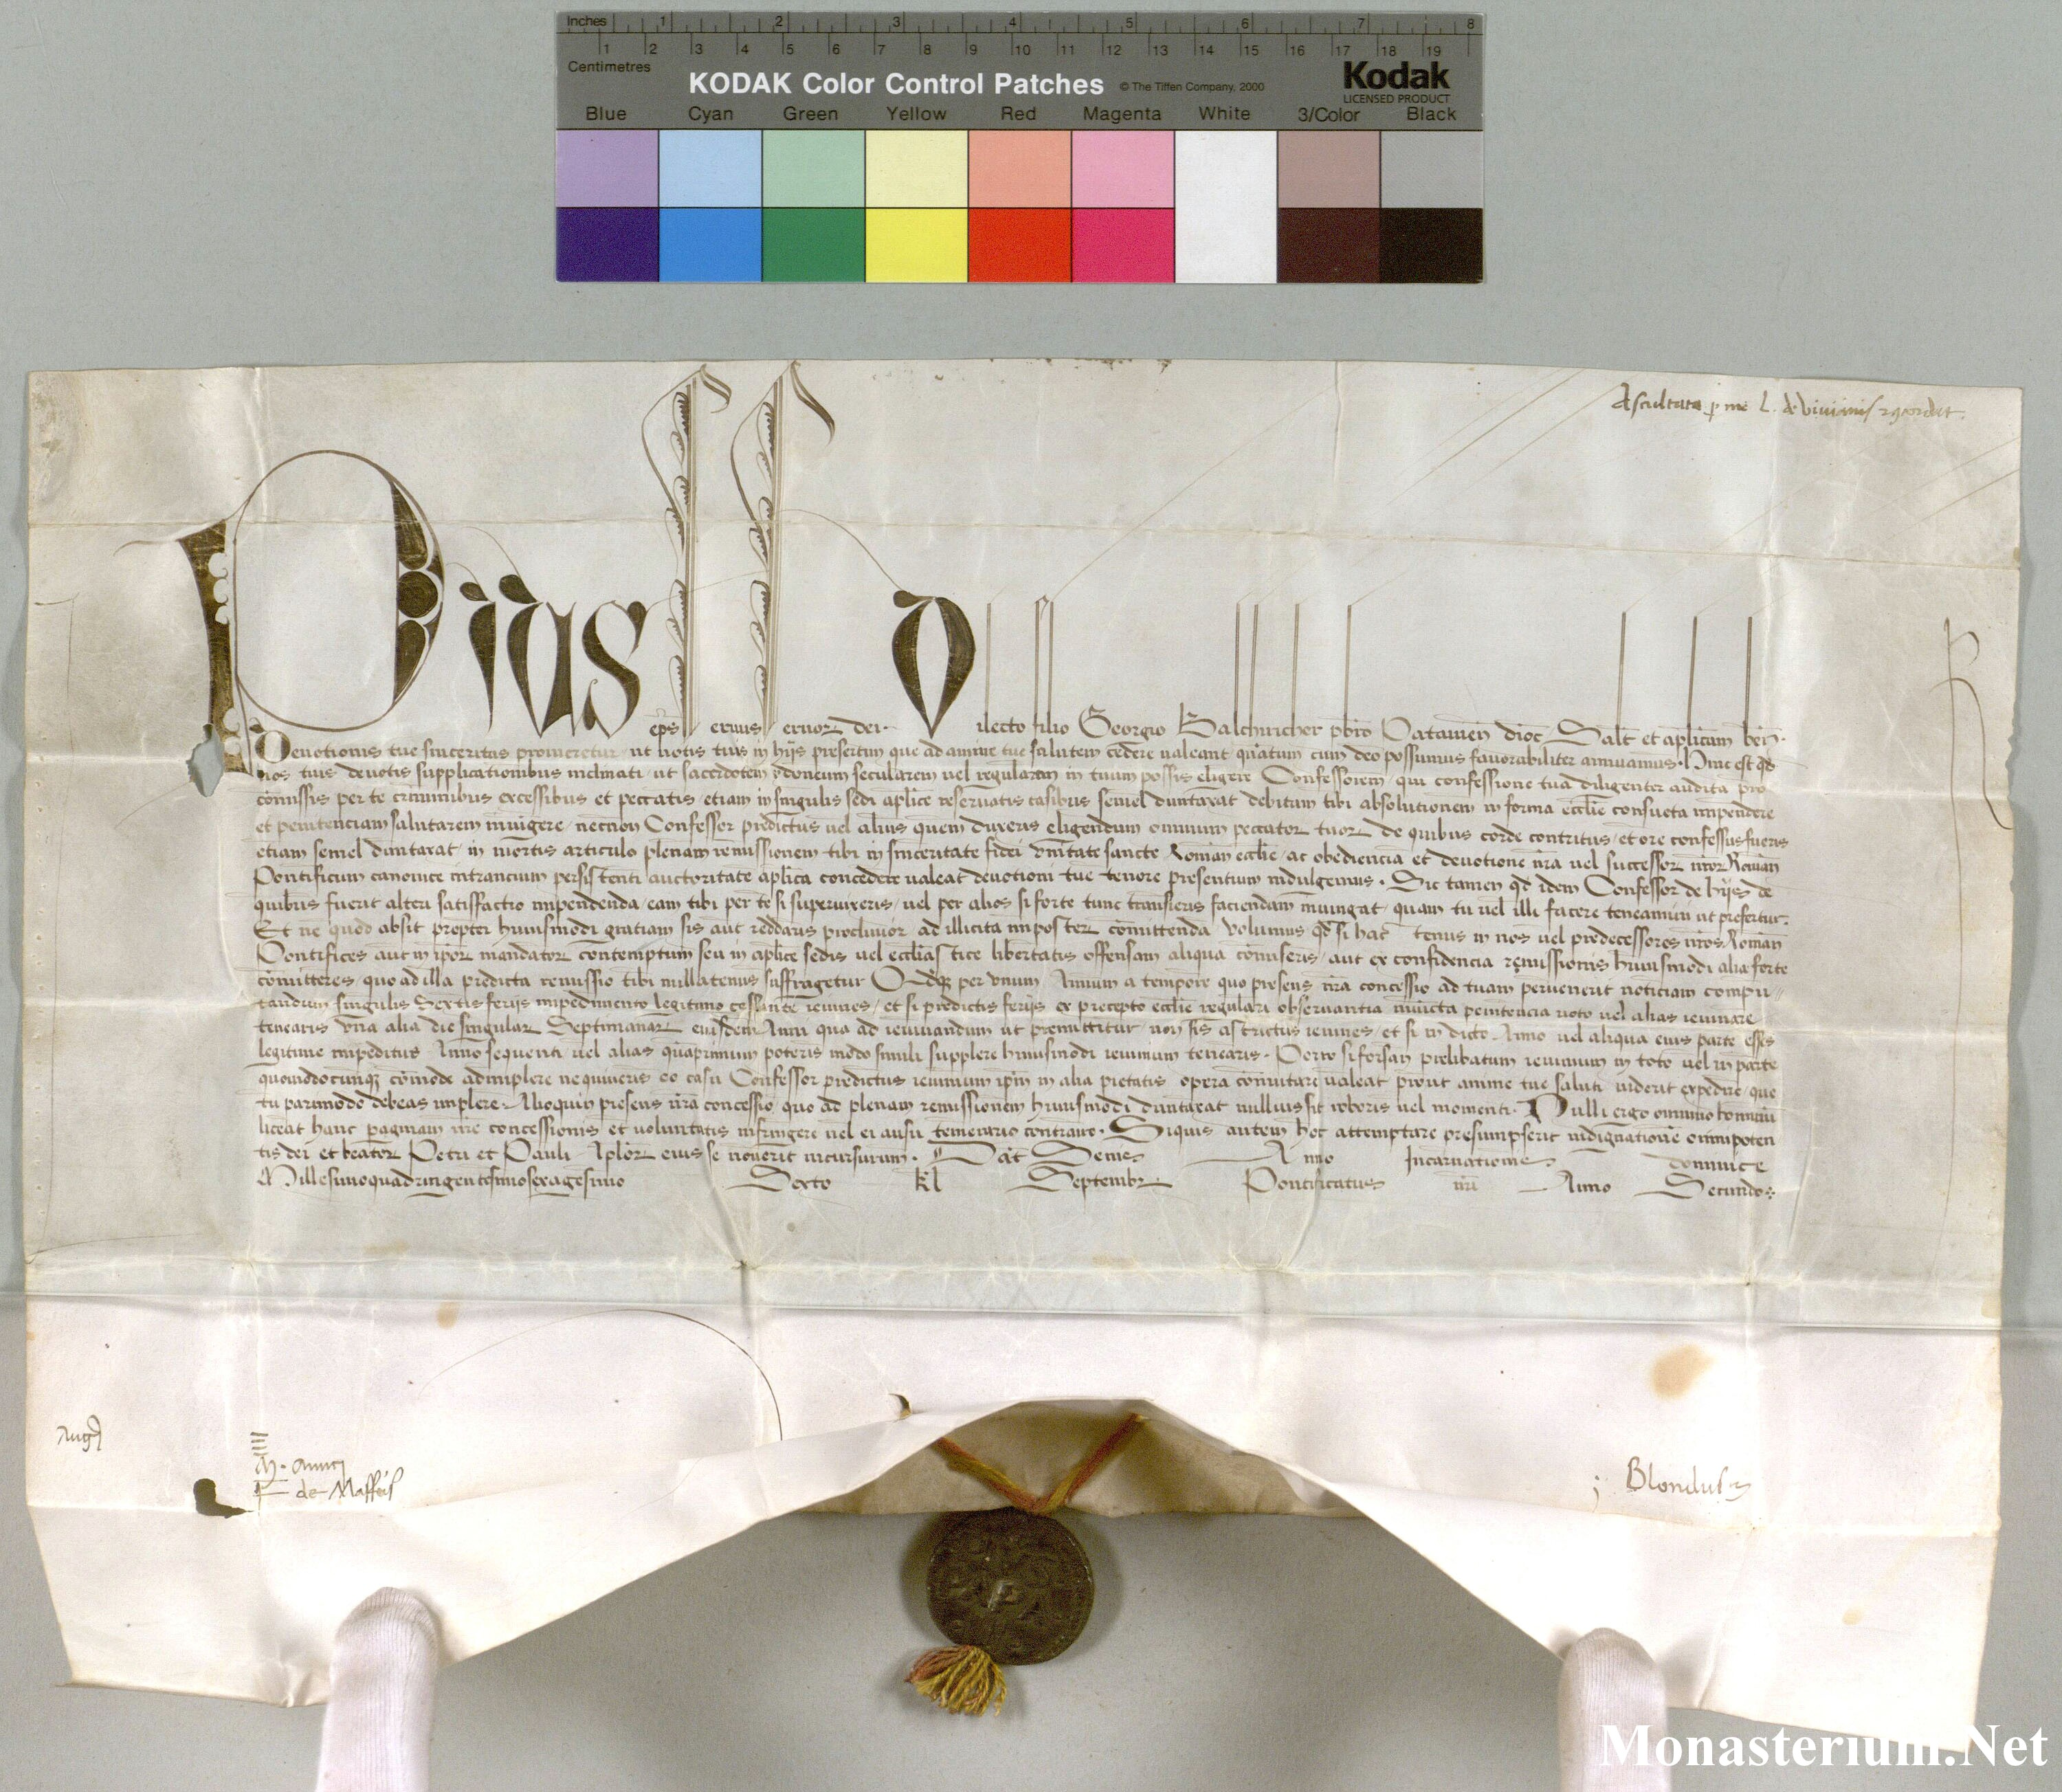 Inches 1 2 3 4 5 6 7 8
1 2 3 4 5 6 7 8 9 10 11 12 13 14 15 16 17 18 19
Centimetres
KODAK Color Control Patches © The Tiffen Company, 2000 Kodak
LICENSED PRODUCT
Blue Cyan Green Yellow Red Magenta White 3/Color Black
Ascultata p me L. de Vivianis
Pius eps seruus seruor dei. Dilecto filio Georgio pbro Patauien dioc Salt et aplicam ben.
Deuotionis tue sinceritas promeretur ut uotis tuis in hijs presertim que ad anime tue salutem cedere ualeant quatum cum deo possumus fauorabiliter annuamus. Hinc est qd
nos tuis deuotis supplicationibus inclinati ut sacerdotem ydoneum secularem uel regularem in tuum possis eligere Confessorem qui confessione tua diligenter audita pro
comissis per te criminibus excessibus et peccatis etiam in singulis sedi aplice reseruatis casibus semel duntaxat debitam tibi absolutionem in forma ecclie consueta impendere
et penitenciam salutarem iniungere necnon Confessor predictus uel alius quem duxeris eligendum omnium peccator tuor de quibus corde contritus et ore confessus fueris
etiam semel duntaxat in mortis articulo plenam remissionem tibi in sinceritate fidei vnitate sancte Roman ecclie ac obediencia et deuotione nra uel successor nror Roman
Pontificum canonice intrancium persistenti auctoritate aplica concedere ualeat deuotioni tue tenore presentium indulgemus. Sic tamen qd idem Confessor de hijs de
quibus fuerit alteri satisfactio impendenda eam tibi per te si superuixeris uel per alios si forte tunc transieris faciendam iniungat quam tu uel illi facere teneamini ut prefertur.
Et ne quod absit propter huiusmodi gratiam sis aut reddaris procliuior ad illicita imposter comittenda volumus qd si hac tenus in nos uel predecessores nros Roman
Pontifices aut in ipor mandator contemptum seu in aplice sedis uel ecclias tice libertatis offensam aliqua comiseris aut ex confidencia remissionis huiusmodi alia forte
comitteres quo ad illa predicta remissio tibi nullatenus suffragetur Qdq per vnum Annum a tempore quo presens nra concessio ad tuam peruenerit noticiam compu
tandum singulis Sextis ferijs impedimento legitimo cessante ieiunes et si predictis ferijs ex precepto ecclie regulari obseruantia iniuncta penitencia uoto uel alias ieiunare
tenearis vna alia die singular Septimanar eiusdem Anni qua ad ieiunandum ut premittitur non sis astrictus ieiunes et si in dicto Anno uel aliqua eius parte esses
legitime impeditus Anno sequenti uel alias quamprimum poteris modo simili supplere huiusmodi ieiunium tenearis. Porro si forsan prelibatum ieiunium in toto uel in parte
quomodocunq comode adimplere nequiueris eo casu Confessor predictus ieiunium ipm in alia pietatis opera comutare ualeat prout anime tue saluti uiderit expedire que
tu parimodo debeas implere. Alioquin presens nra concessio quo ad plenam remissionem huiusmodi duntaxat nullius sit roboris uel momenti. Nulli ergo omnino hominum
liceat hanc paginam nre concessionis et uoluntatis infringere uel ei ausu temerario contraire. Siquis autem hoc attemptare presumpserit indignatione omnipoten
tis dei et beator Petri et Pauli Aplor eius se nouerit incursurum. Dat Senis Anno Incarnationis dominice
Millesimoquadringentesimosexagesimo Sexto kl Septembr Pontificatus nri Anno Secundo
M. Amici
de Maffeis
Blondus
Monasterium.Net